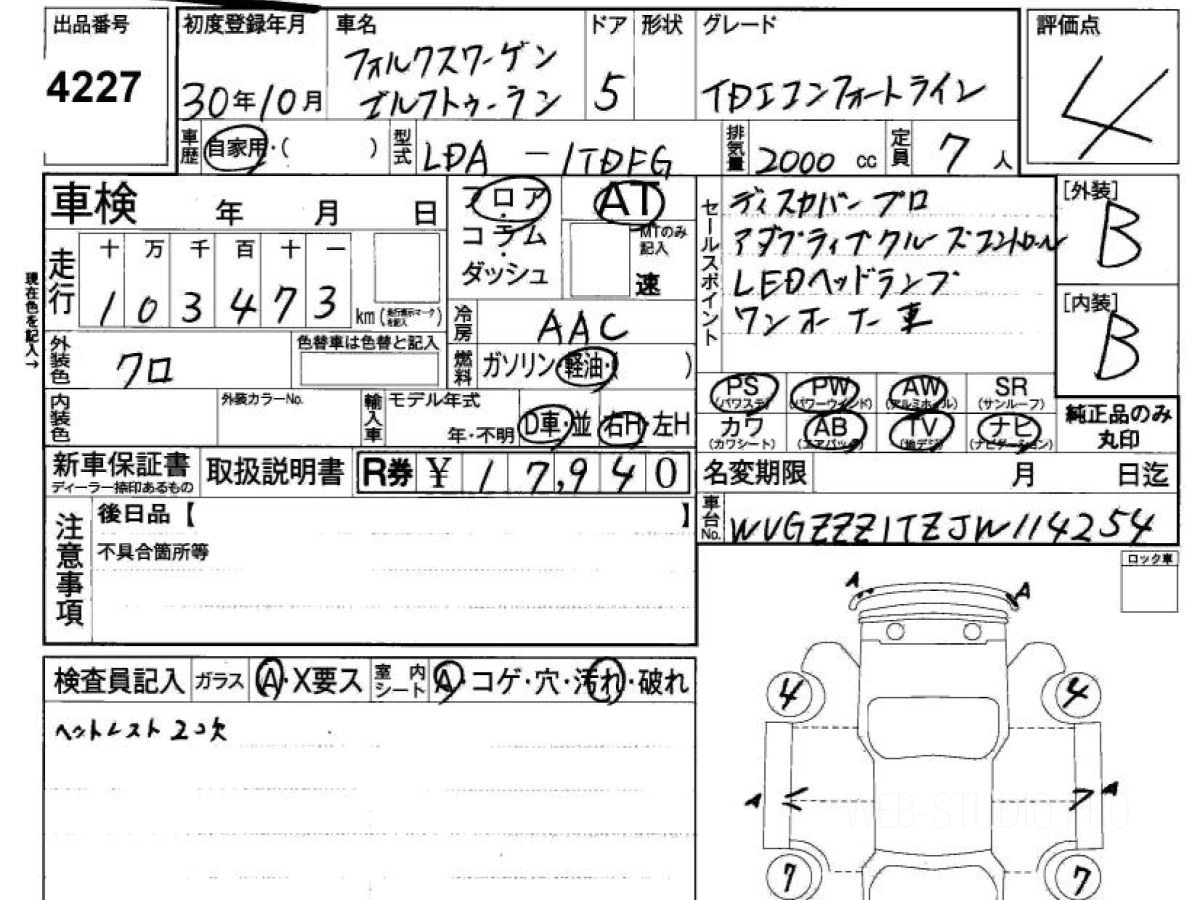 出品番号
4227
初度登録年月
30年10月
車名
フォルクスワーゲン
ゴルフトゥーラン
ドア
5
形状
グレード
TDIコンフォートライン
評価点
4
車歴
自家用・( )
型式
LDA - 1TDFG
排気量
2000 cc
定員
7 人
車検 年 月 日
フロア・
コラム
ダッシュ
AT
MTのみ
記入
速
セールスポイント
ディスカバープロ
アダプティブクルーズコントロール
LEDヘッドランプ
ワンオーナー車
[外装]
B
[内装]
B
現在色を記入→
走行
十 万 千 百 十 一
1 0 3 4 7 3 km
冷房
AAC
外装色
クロ
色替車は色替と記入
燃料
ガソリン・軽油・( )
PS
(パワステ)
PW
(パワーウインド)
AW
(アルミホイル)
SR
(サンルーフ)
カワ
(カワシート)
AB
(エアバッグ)
TV
(地デジ)
ナビ
(ナビゲーション)
純正品のみ
丸印
内装色
外装カラーNo.
輸入車
モデル年式
年・不明
D車・並
右H・左H
新車保証書
ディーラー捺印あるもの
取扱説明書
R券 ¥ 17,940
名変期限 月 日迄
車台No.
WVGZZZ1TZJW114254
注意事項
後日品【 】
不具合箇所等
ロック車
検査員記入
ガラス
A・X要ス
室内シート
A・コゲ・穴・汚れ・破れ
ヘットレスト 2コ欠
A
A
4
4
A
A
7
7
WEB-STUDIO.PRO